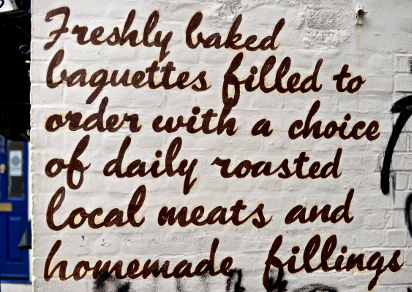 Freshly baked
baguettes filled to
order with a choice
of daily roasted
local meats and
homemade fillings